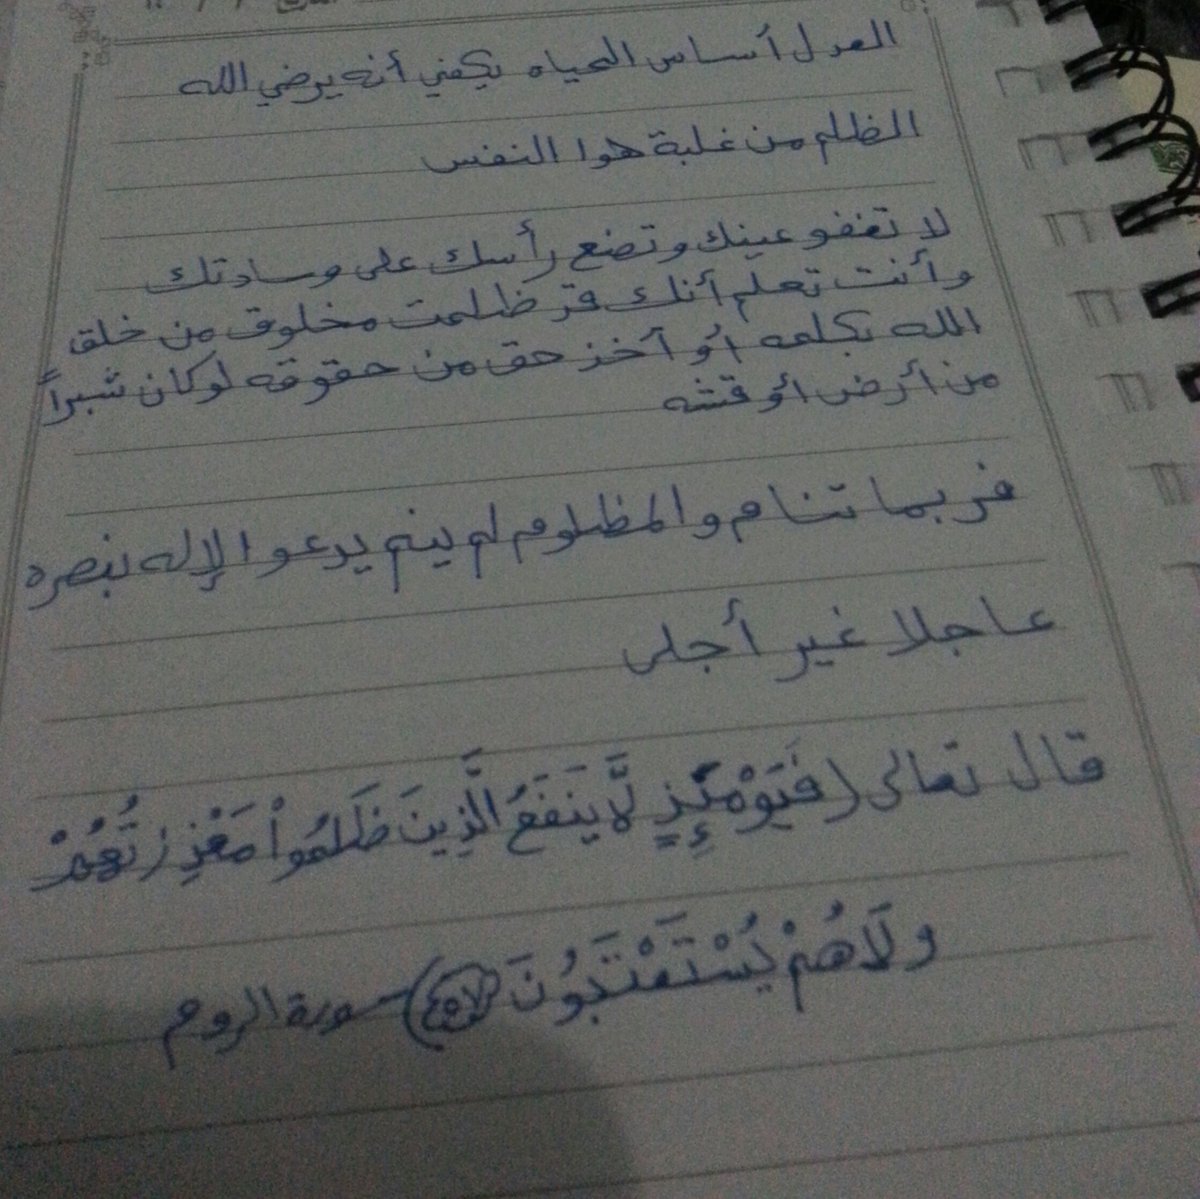 العدل أساس الحياه يكفي أنه يرضي الله
الظلم من غلبة هوا النفس
لا تغفو عينك وتضع رأسك على وسادتك
وأنت تعلم أنك قد ظلمت مخلوق من خلق
الله بكلمه أو آخذ حق من حقوقه لو كان شبراً
من أرض أو قشه
فربما تنام والمظلوم لم ينم يدعوا الإله بنصره
عاجلا غير أجلى
قال تعالى (فَيَوْمَئِذٍ لَّا يَنفَعُ الَّذِينَ ظَلَمُواْ مَعْذِرَتُهُمْ
وَلَا هُمْ يُسْتَعْتَبُونَ ٥٧) سورة الروم